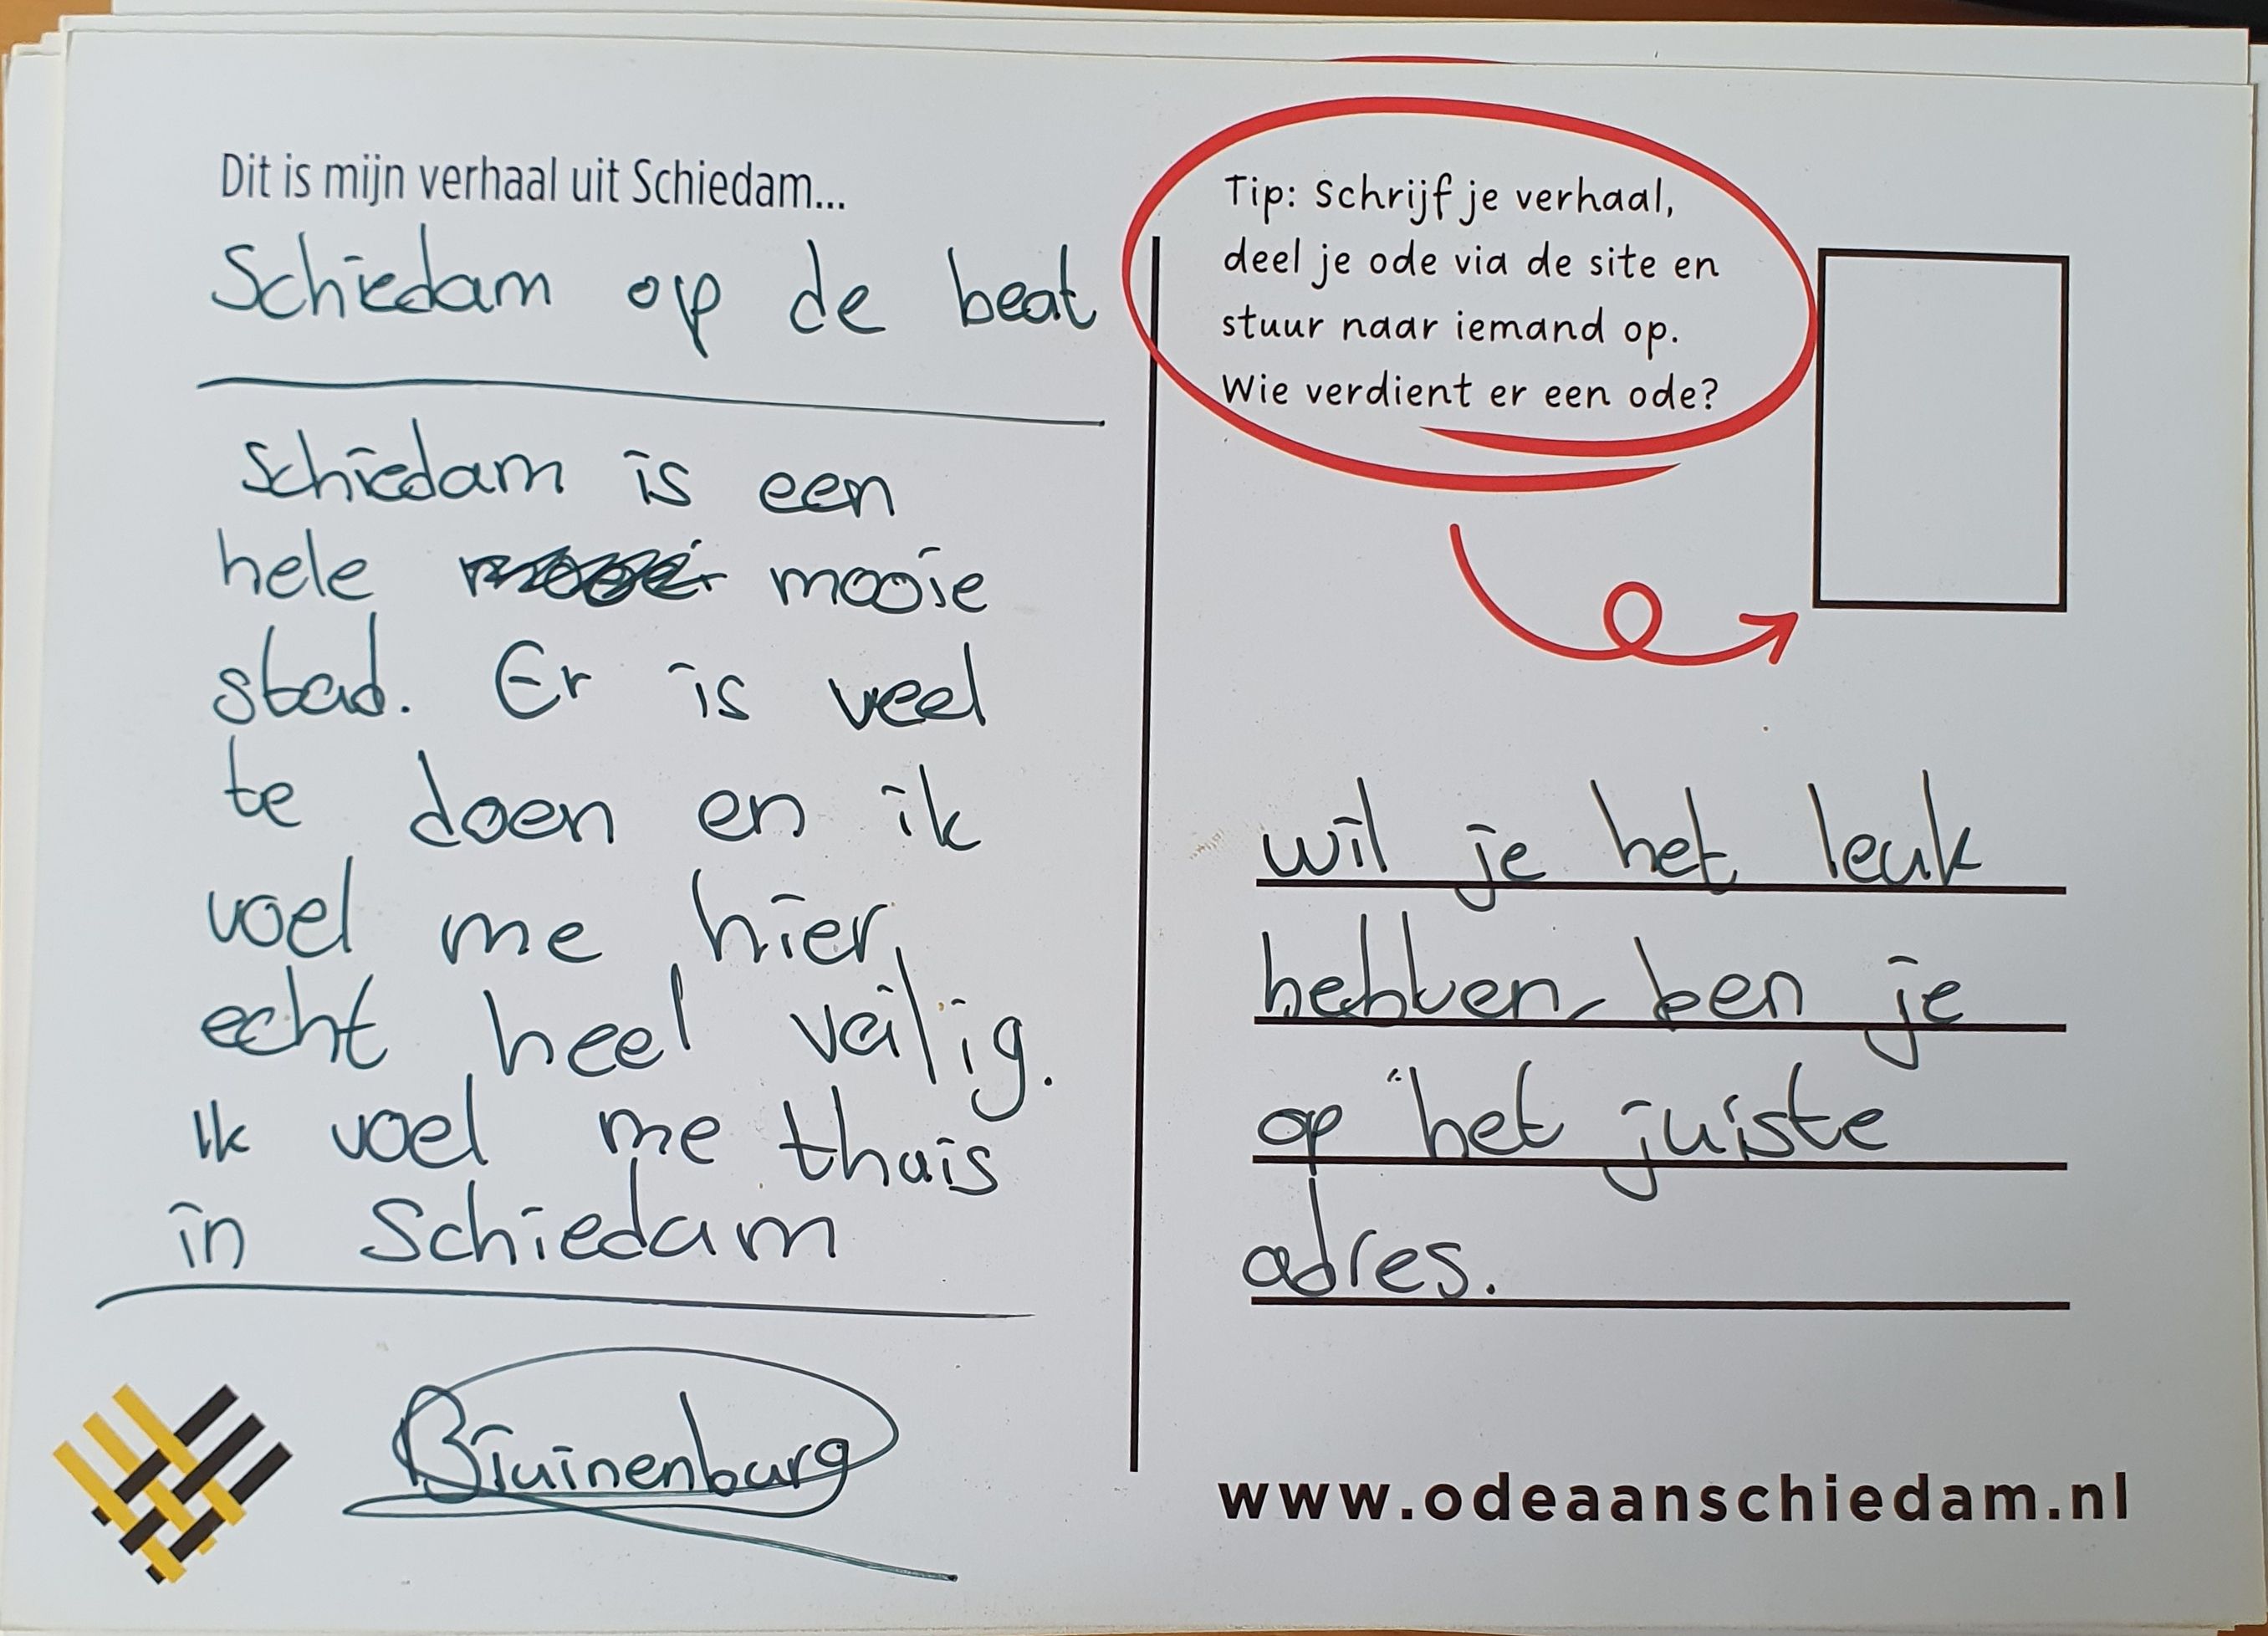 Dit is mijn verhaal uit Schiedam...
Schiedam op de beat
Schiedam is een
hele mooie
stad. Er is veel
te doen en ik
voel me hier
echt heel veilig.
Ik voel me thuis
in Schiedam
Tip: Schrijf je verhaal,
deel je ode via de site en
stuur naar iemand op.
Wie verdient er een ode?
wil je het leuk
hebben, ben je
op het juiste
adres.
www.odeaanschiedam.nl